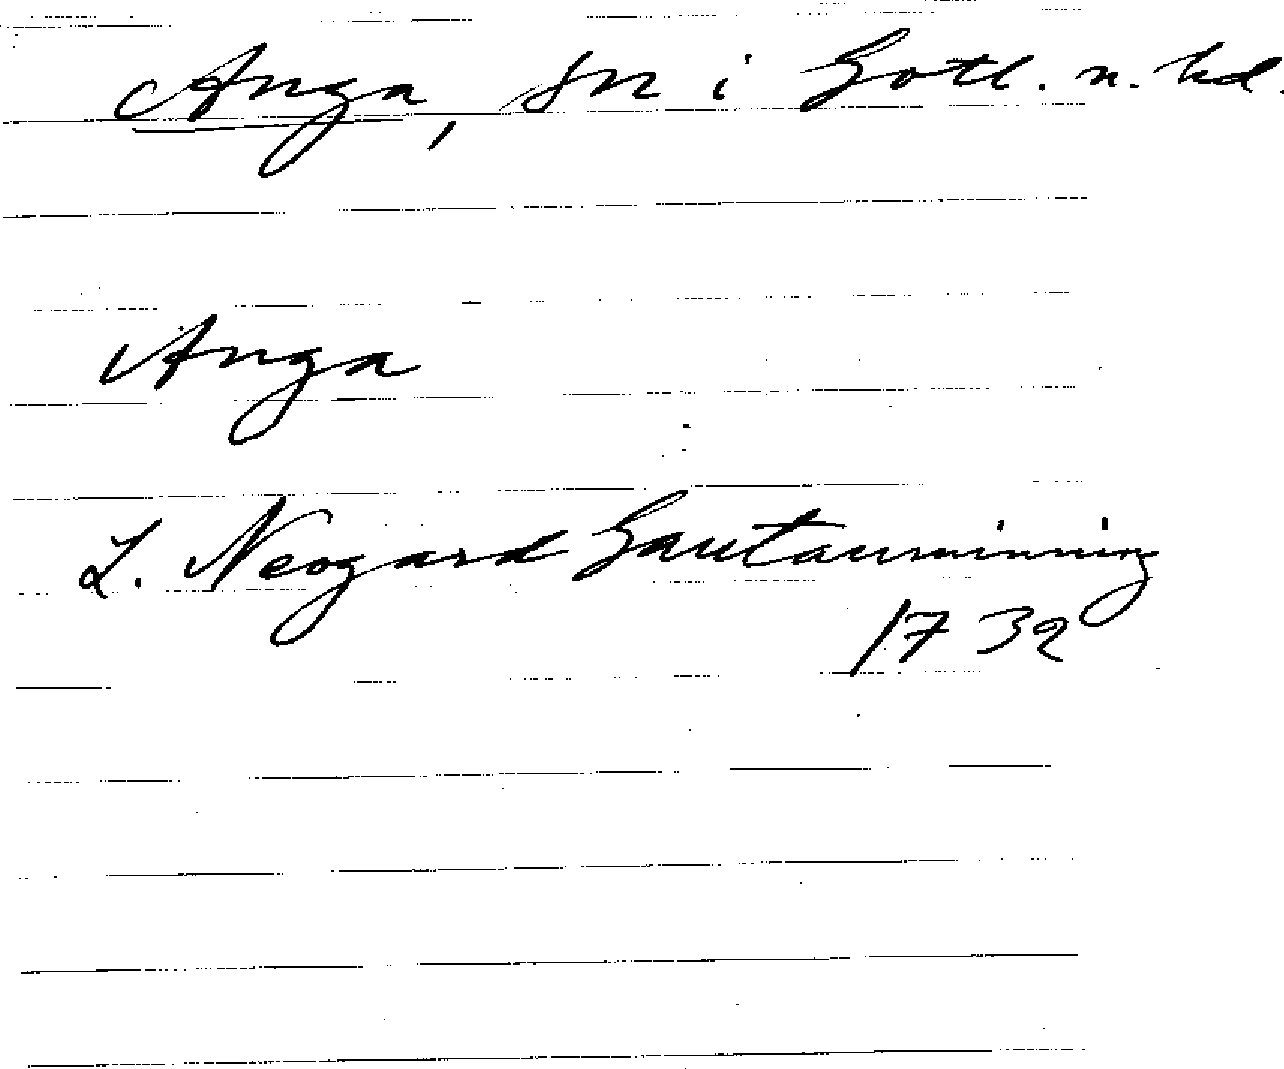 Anga, sn i Gotl. n. hd.
Anga
L. Neogard Gautauminning
1732